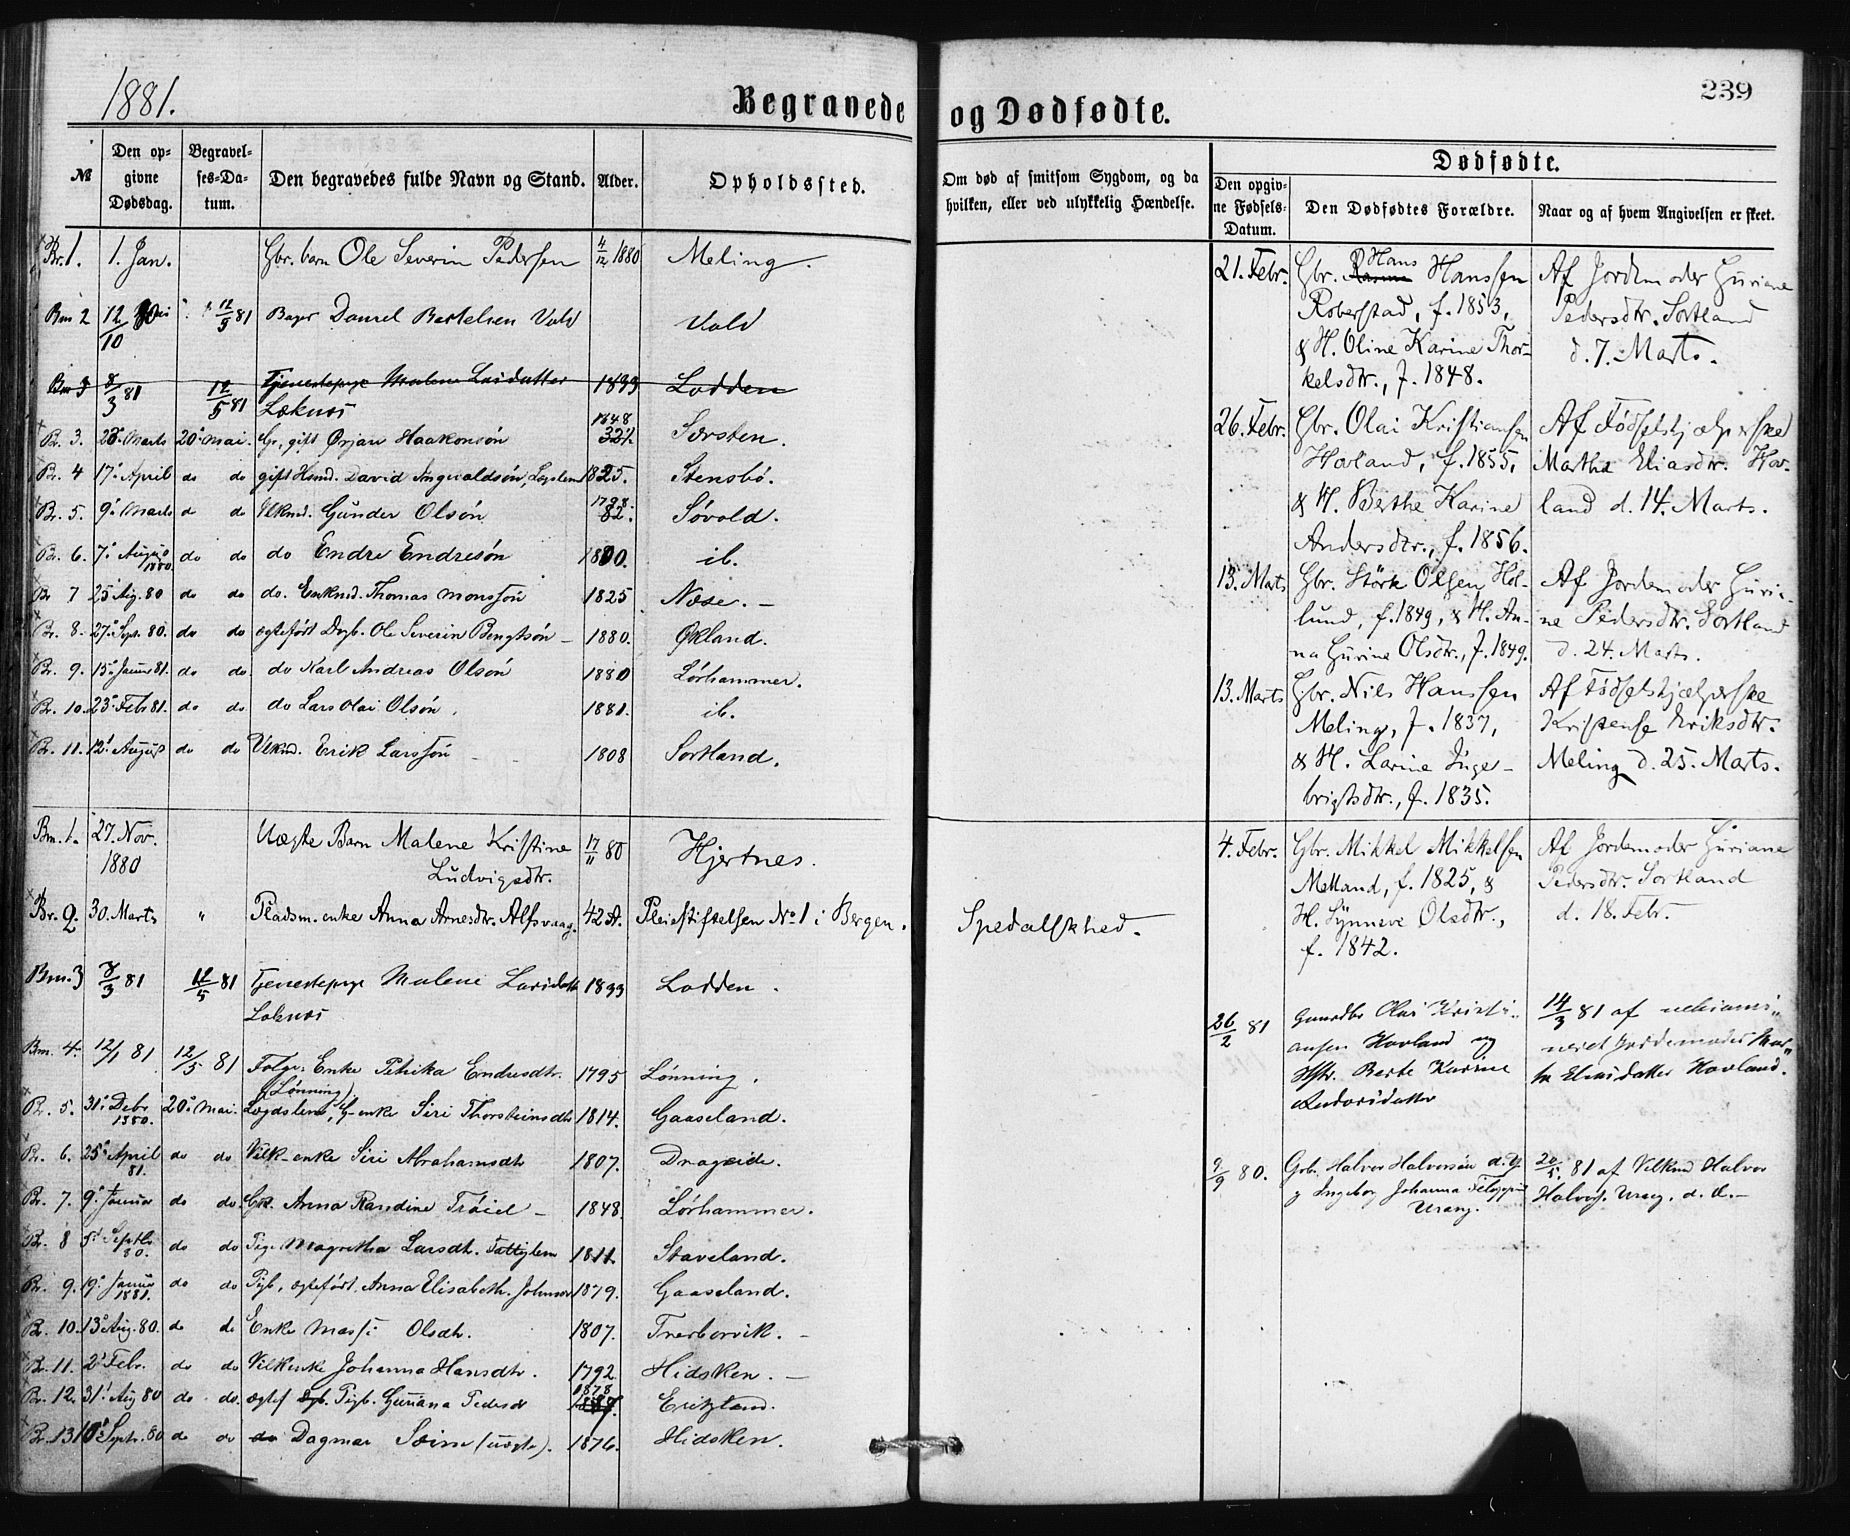 1881.
Begravede og Dødfødte.
239
№
Den op-
givne
Dødsdag.
Begravel-
ses-Da-
tum.
Den begravedes fulde Navn og Stand.
Alder.
Opholdssted.
Om død af smitsom Sygdom, og da
hvilken, eller ved ulykkelig Hændelse.
Dødfødte.
Den opgiv-
ne Fødsels-
Datum.
Den Dødfødtes Forældre.
Naar og af hvem Angivelsen er skeet.
Br. 1. 1. Jan. Gbr. barn Ole Severin Pedersen 4/12 1880 Meling.
Bm 2 12/10 80 12/5 81 Daniel Bertelsen Vold Vold
Bm 3 8/3 81 12/5 81 Tjenestepige Malene Larsdatter 1833 Lodden
Loknes
1848
Br. 3. 28. Marts 20. Mai. Gr, gift Ørjan Haakonsøn Særsten.
Br. 4 17. April do do gift Hsmd. David Ingvaldsøn, Lægdslem 1825. Stensbø.
Br. 5. 9. Marts do do Vlkmd. Gunder Olsøn 1798. Søvold.
Br. 6. 7. August 1880. do do do Endre Endresøn 1800. ib.
Br 7 25 Aug. 80 do do do. Enkmd. Thomas Monssøn 1825 Næse. -
Br. 8. 27. Sept. 80. do do ægtefødt Dgb. Ole Severin Bengtsøn - 1880. Økland.
Br. 9. 15. Januar 81. do do do Karl Andreas Olsøn 1880 Lørhammer.
Br. 10. 23. Feb 81. do do do Lars Olai Olsøn. 1881. ib.
Br. 11. 12. August do do Vlkmd. Erik Larssøn 1808 Sortland.
Bm. 1. 27. Nov. 1880 Uægte Barn Malene Kristine 17/11 80 Hjertnes.
Ludvigsdtr.
Br. 2. 30. Marts " Pladsm. enke Anna Arnesdtr. Alfsvaag. 42 A. Pleiestiftelsen No 1 i Bergen. Spedalskhed.
Bm. 3 8/3 81 12/5 81 Tjenestepige Malene Larsdatt 1833 Lodden.
Loknes
Bm. 4. 12/1 81 12/5 81 Folge. Enke Petrika Endresdtr. 1795 Lønning.
(Lønning)
Br. 5. 31. Debr 1880. 20. Mai. Lægdslem, G-enke Siri Thorsteinsdtr 1814. Gaaseland.
Br. 6. 25. April 81. do do Vilk-enke Siri Abrahamsdtr 1807. Drageide.
Br. 7. 9. Januar do do. Gk. Anna Randine Trøiel - 1848. Lørhammer.
Br. 8 5. Septb 80. do do Pige Magretha Larsdtr. Fattiglem 1811. Staveland.
Br. 9. 19. Januar 1881. do do Pigb, ægtefødt. Anna Elisabeth Johnsdr 1879. Gaaseland.
Br. 10. 13. Aug. 80. do do Enke Massi Olsdtr. 1807. Tverborvik. -
Br. 11. 2. Febr. do do Vilkenke Johanna Hansdtr. 1792. Hidsken. -
Br. 12. 31. Aug 80 do do. ægtef Pigb. Guriana Pedersd 1878 Erikstand.
Br. 13 10. Septr. 80 do do do Dagmar Sæim (uægte). 1876. Hidsken.
21. Febr.
Gbr. Hans Hanssen
Roberstad, f. 1853,
& H. Oline Karine Thor-
kelsdtr., f. 1848.
Af Jordemoder Guriane
Pedersdtr. Sortland
d. 7. Marts.
26. Febr.
Gbr. Olai Kristiansen
Hovland, f. 1855,
& H. Berthe Karine
Andersdtr., f. 1856.
Af Fødselshjælperske
Marthe Eliasdtr. Hov-
land d. 14. Marts.
13. Marts
Gbr. Størk Olsen Hol-
lund, f. 1849, & H. An-
na Gurine Olsdtr., f. 1849.
Af Jordemoder Guria-
ne Pedersdtr. Sortland
d. 24. Marts.
13. Marts
Gbr. Nils Hanssen
Meling, f. 1837,
& H. Larine Inge-
brigtsdtr., f. 1835.
Af Fødselshjælperske
Kristense Eriksdtr.
Meling d. 25. Marts.
4. Febr.
Gbr. Mikkel Mikkelsen
Melland, f. 1825, &
H. Synneve Olsdtr.,
f. 1842.
Af Jordemoder Guriane
Pedersdtr. Sortland
d. 18. Febr.
26/2 81
Gaardbr Olai Kristi-
ansen Hovland og
Hstr. Berte Karine
Andersdatter
14/3 81 af uexami-
neret Jordemoder Mar-
te Eliasdatter Hovland.
9/9 80.
Grb. Halvor Halvorsøn
og Ingeborg Johanna
Urang.
20/5. 81 af Vilkmd Halvor
Halvors. Urang, d. æ. -